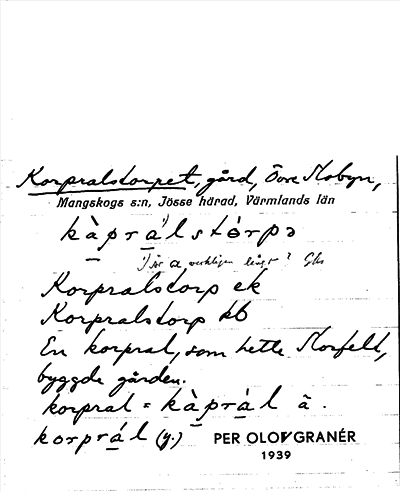 Korpralstorpet, gård, Övre Mobyn,
Mangskogs s:n, Jösse härad, Värmlands län
kàprálstórpə
Är a verkligen långt?
Korpralstorp ek
Korpralstorp kb
En korpral, som hette Morfeldt,
byggde gården.
korpral = kàprál ā.
korprál (y.) PER OLOV GRANÉR
1939